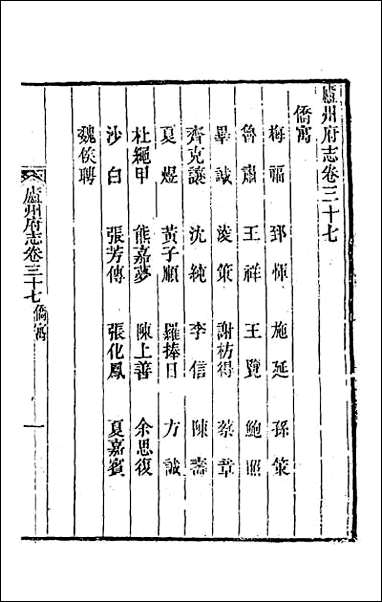 廬州府志卷三十七
僑寓
梅福 郅惲 施延 孫策
魯肅 王祥 王覽 鮑照
畢諴 淩策 謝枋得 蔡章
齊克讓 沈純 李信 陳壽
夏煜 黃子順 羅捧日 方誠
杜繩甲 熊嘉夢 陳上善 余思復
沙白 張芳傳 張化鳳 夏嘉賓
魏俟聘
廬州府志卷三十七 僑寓 一